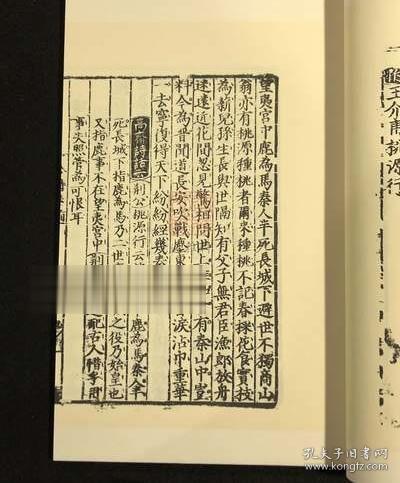 王介甫桃源行
望夷宮中鹿為馬秦人半死長城下避世不獨商山
翁亦有桃源種桃者爾來種桃不記春採花食實枝
為薪兒孫生長與世隔知有父子無君臣漁郎放舟
迷遠近花間忽見驚相問世上有秦山中豈
料今為晉聞道長安吹戰塵東淚沾巾重華
一去寧復得天下紛紛經幾秦
高齋詩話云荊公桃源行云鹿為馬秦人半
死長城下指鹿為馬乃二世之役乃始皇也
又指鹿事不在望夷宮中荊配古人惜乎用
事失照管為可恨耳
孔夫子旧书网
www.kongfz.com